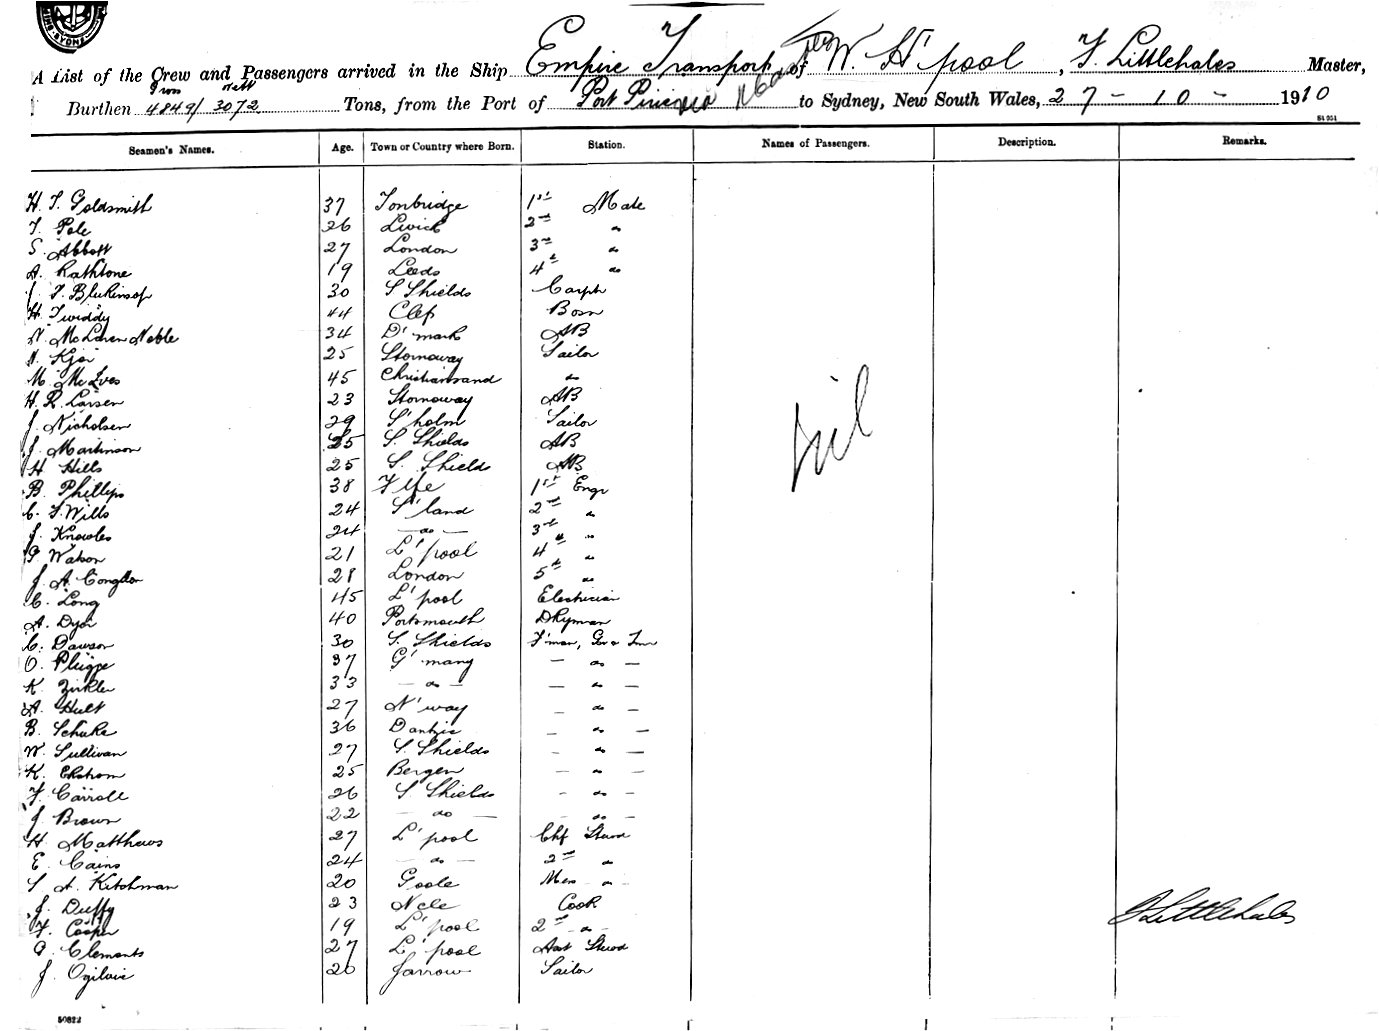 A List of the Crew and Passengers arrived in the Ship Empire Transport of W. H'pool, F. Littlehales Master,
Gross Nett
Burthen 4849/3072 Tons, from the Port of Port Pirie to Sydney, New South Wales, 27 - 10 - 1910
Seamen's Names. Age. Town or Country where Born. Station. Names of Passengers. Description. Remarks.
H. T. Goldsmith 37 Tonbridge 1st Mate
T. Pole 26 2nd "
S. Abbott 27 London 3rd "
A. Rathbone 19 Leeds 4th "
J. T. Blenkinsop 30 S Shields Carptr
H. Twiddy 44 Clep Bosn
N. McLaren Noble 34 D'mark AB
N. Kjar 25 Stornoway Sailor
M. McIves 45 Christiansand "
H. R. Larsen 23 Stornoway AB
J. Nicholsen 29 S'holm Sailor
J. Martinson 25 S. Shields AB
H Hills 25 S. Shields AB
B. Phillips 38 Fife 1st Engr
C. T. Wills 24 S'land 2nd "
J. Knowles 24 — do — 3rd "
G. Watson 21 L'pool 4th "
J. A. Congdon 28 London 5th "
C. Long 45 L'pool Electrician
A. Dyer 40 Portsmouth Dkyman
C. Dawson 30 S. Shields F'man,
O. Plügge 37 G'many — do —
K. Zirkler 33 — do — — do —
A. Hult 27 N'way — do —
B. Schuke 36 Dantzic — do —
W. Sullivan 27 S. Shields — do —
K. Ekstrom 25 Bergen — do —
F. Carroll 26 S Shields — do —
J. Brown 22 — do — — do —
H. Matthews 27 L'pool Chf Stewd
E. Cains 24 — do — 2nd "
S. A. Kitchman 20 Goole Mess — " —
J. Duffy 23 Ncle Cook
F. Cooper 19 L'pool 2nd — " —
G. Clements 27 L'pool Asst Stewd
J. Ogilvie 26 Jarrow Sailor
Nil
F Littlehales
50822